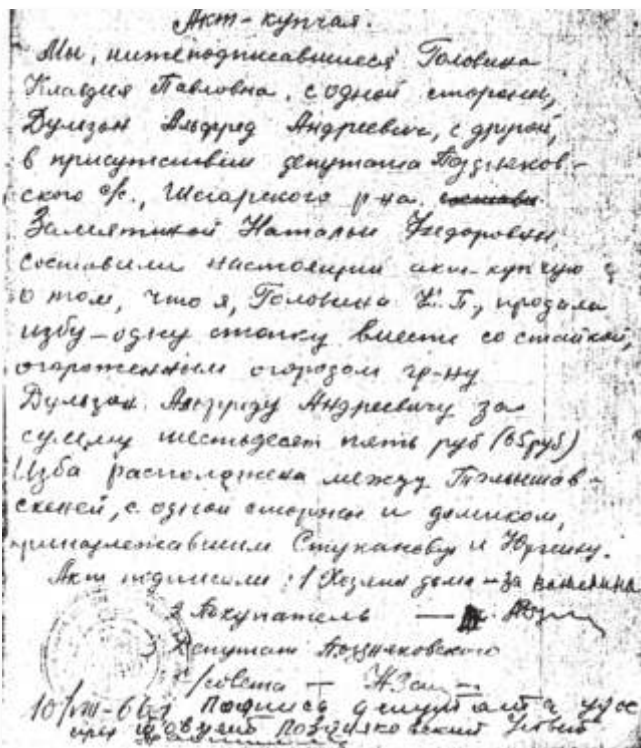 Акт-купчая.
Мы, нижеподписавшиеся Головина
Клавдия Павловна, с одной стороны,
Дульзон Альфред Андреевич, с другой,
в присутствии депутата Поздняков-
ского с/с., Шегарского р-на
Замятиной Натальи Федоровны
составили настоящий акт-купчую
о том, что я, Головина К.П., продала
избу-одну стопку вместе со стайкой,
огороженным огородом гр-ну
Дульзон Альфреду Андреевичу за
сумму шестьдесят пять руб (65руб)
Изба расположена между
с одной стороны и домиком,
принадлежавшим Стуканову и Юргину.
Акт подписали: 1 Хозяин дома - за
2 Покупатель —
3 Депутат Поздняковского
с/совета — НЗам
10/VIII-66г подпись депутата
Поздняковский